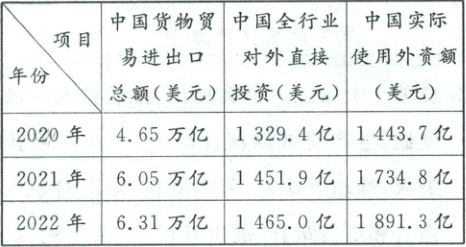 项目
年份
中国货物贸
易进出口
总额(美元)
中国全行业
对外直接
投资(美元)
中国实际
使用外资额
(美元)
2020年 4.65万亿 1 329.4亿 1 443.7亿
2021年 6.05万亿 1 451.9亿 1 734.8亿
2022年 6.31万亿 1 465.0亿 1 891.3亿